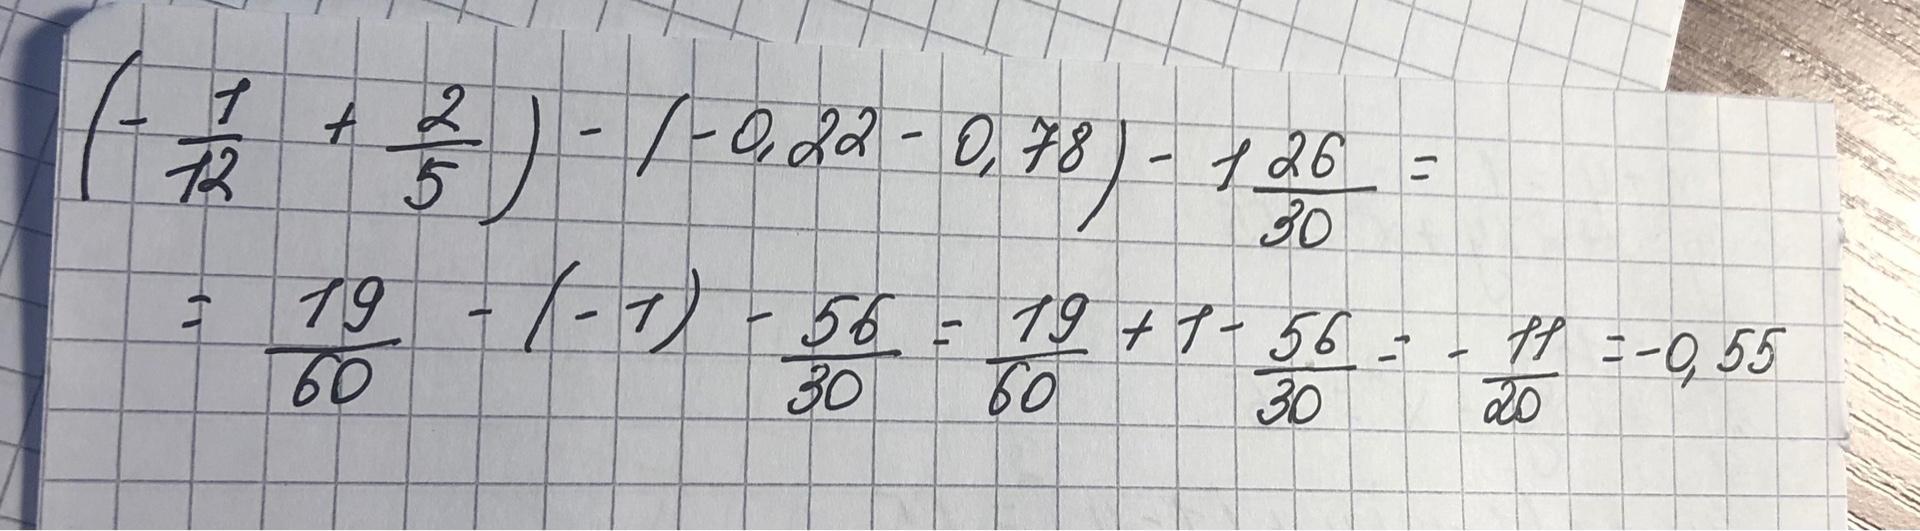 (-1/12 + 2/5) - (-0,22 - 0,78) - 1 26/30 =
= 19/60 - (-1) - 56/30 = 19/60 + 1 - 56/30 = - 11/20 = -0,55